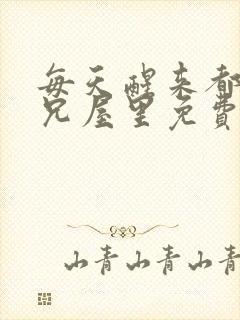 每天醒来都
兄屋里免费
山青山青山青